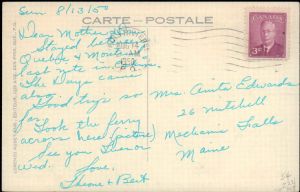 Sun 8/13/50
CARTE — POSTALE
Dear Mother
Stayed between
Quebec & Montreal
last nite in
The Days came
along.
Good trip so
far. Took the ferry
across here (picture)
See you Tues or
Wed. Love,
& Bert
CANADA
3
Mrs. Anita Edwards
26 Mitchell
Mechanic Falls
Maine